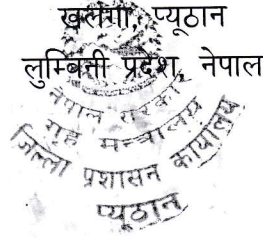 खलंगा, प्यूठान
लुम्बिनी प्रदेश, नेपाल
नेपाल सरकार
गृह मन्त्रालय
जिल्ला प्रशासन कार्यालय
प्यूठान